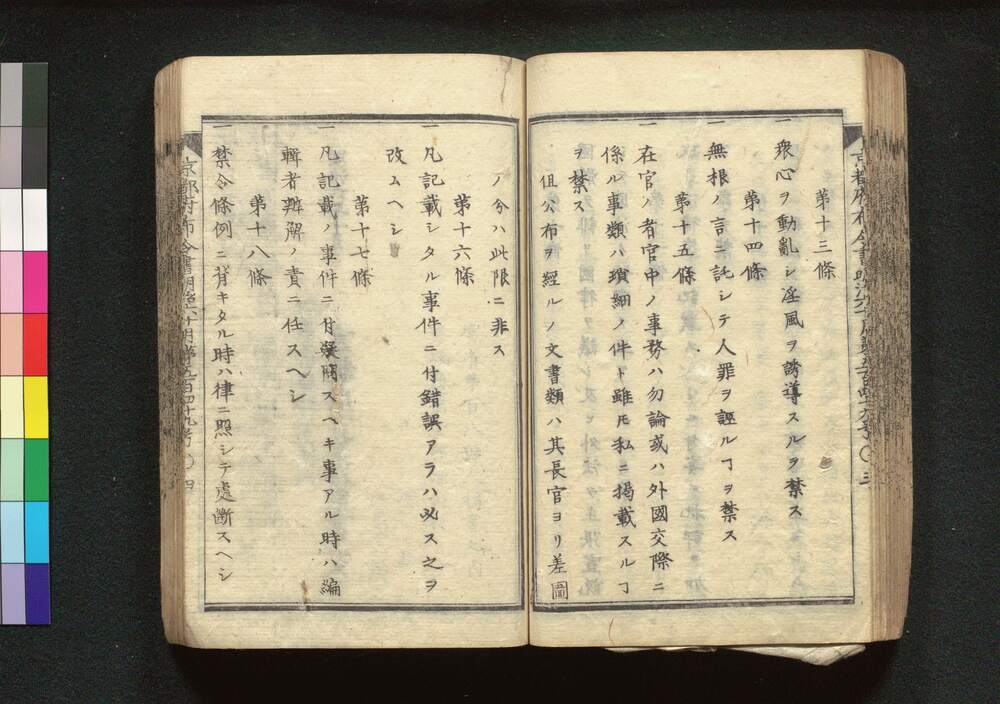 第十三條
一 衆心ヲ動亂シ淫風ヲ誘導スルヲ禁ス
第十四條
一 無根ノ言ニ託シテ人罪ヲ誣ルヿヲ禁ス
第十五條
一 在官ノ者官中ノ事務ハ勿論或ハ外國交際ニ
係ル事類ハ瑣細ノ件ト雖𪜈私ニ掲載スルヿ
ヲ禁ス
但公布ヲ經ルノ文書類ハ其長官ヨリ差圖
ノ分ハ此限ニ非ス
第十六條
一 凡記載シタル事件ニ付錯誤アラハ必ス之ヲ
改ムヘシ
第十七條
一 凡記載ノ事件ニ付疑問スヘキ事アル時ハ編
輯者辨解ノ責ニ任スヘシ
第十八條
一 禁令條例ニ背キタル時ハ律ニ照シテ處斷スヘシ
京都府布令書明治六年十月第五百四十九号 四